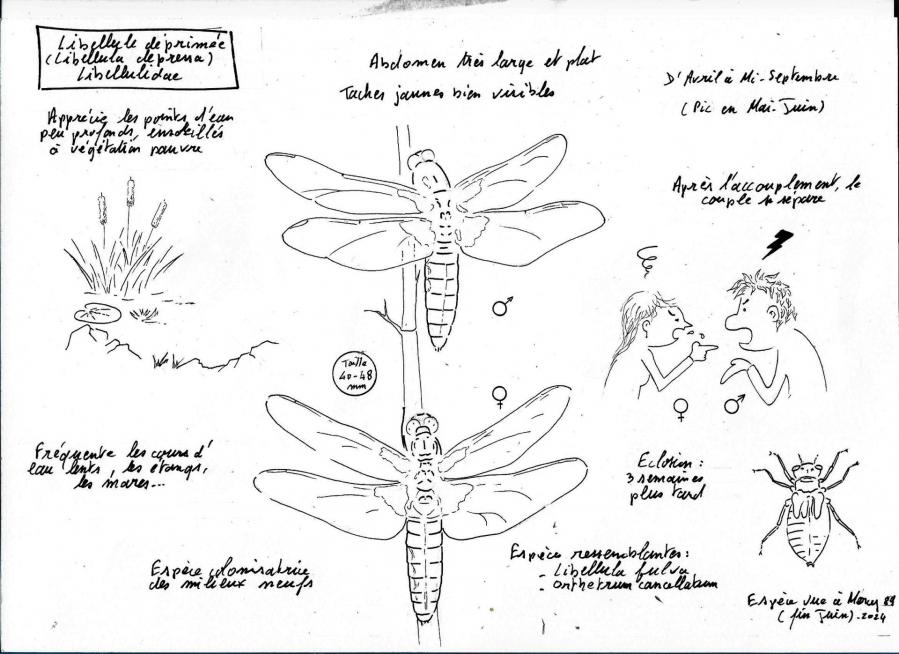 Libellule déprimée
(Libellula depressa)
Libellulidae
Abdomen très large et plat
Taches jaunes bien visibles
D'Avril à Mi-Septembre
(Pic en Mai-Juin)
Apprécie les points d'eau
peu profonds, ensoleillés
à végétation pauvre
Après l'accouplement, le
couple se sépare
♂
Taille
40-48
mm
♀
♀ ♂
Fréquente les cours d'
eau lents, les étangs,
les mares...
Eclosion :
3 semaines
plus tard
Espèce colonisatrice
des milieux neufs
Espèce ressemblantes :
- Libellula fulva
- Orthetrum cancellatum
Espèce vue à
(fin Juin).2024